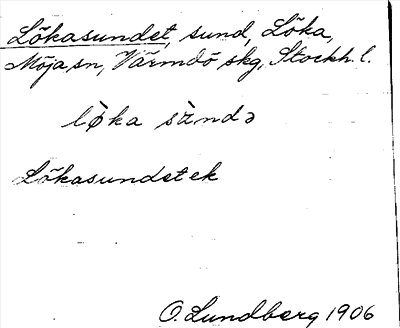 Lökasundet, sund, Löka,
Möja sn, Värmdö skg, Stockh. l.
lø̀ka sàndə
Lökasundet ek
O. Lundberg 1906